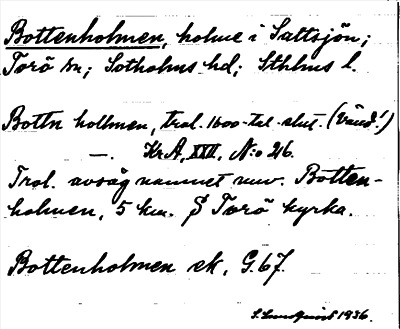 Bottenholmen, holme i Saltsjön;
Torö sn; Sotholms hd; Sthlms l.
Bottn hollmen, trol. 1600-tal slut. (Vänd!)
—. KrA, XXII, N:o 26.
Trol. avsåg namnet nuv. Botten-
holmen, 5 km. S Torö kyrka.
Bottenholmen ek, G.67.
S. Lundqvist 1936.